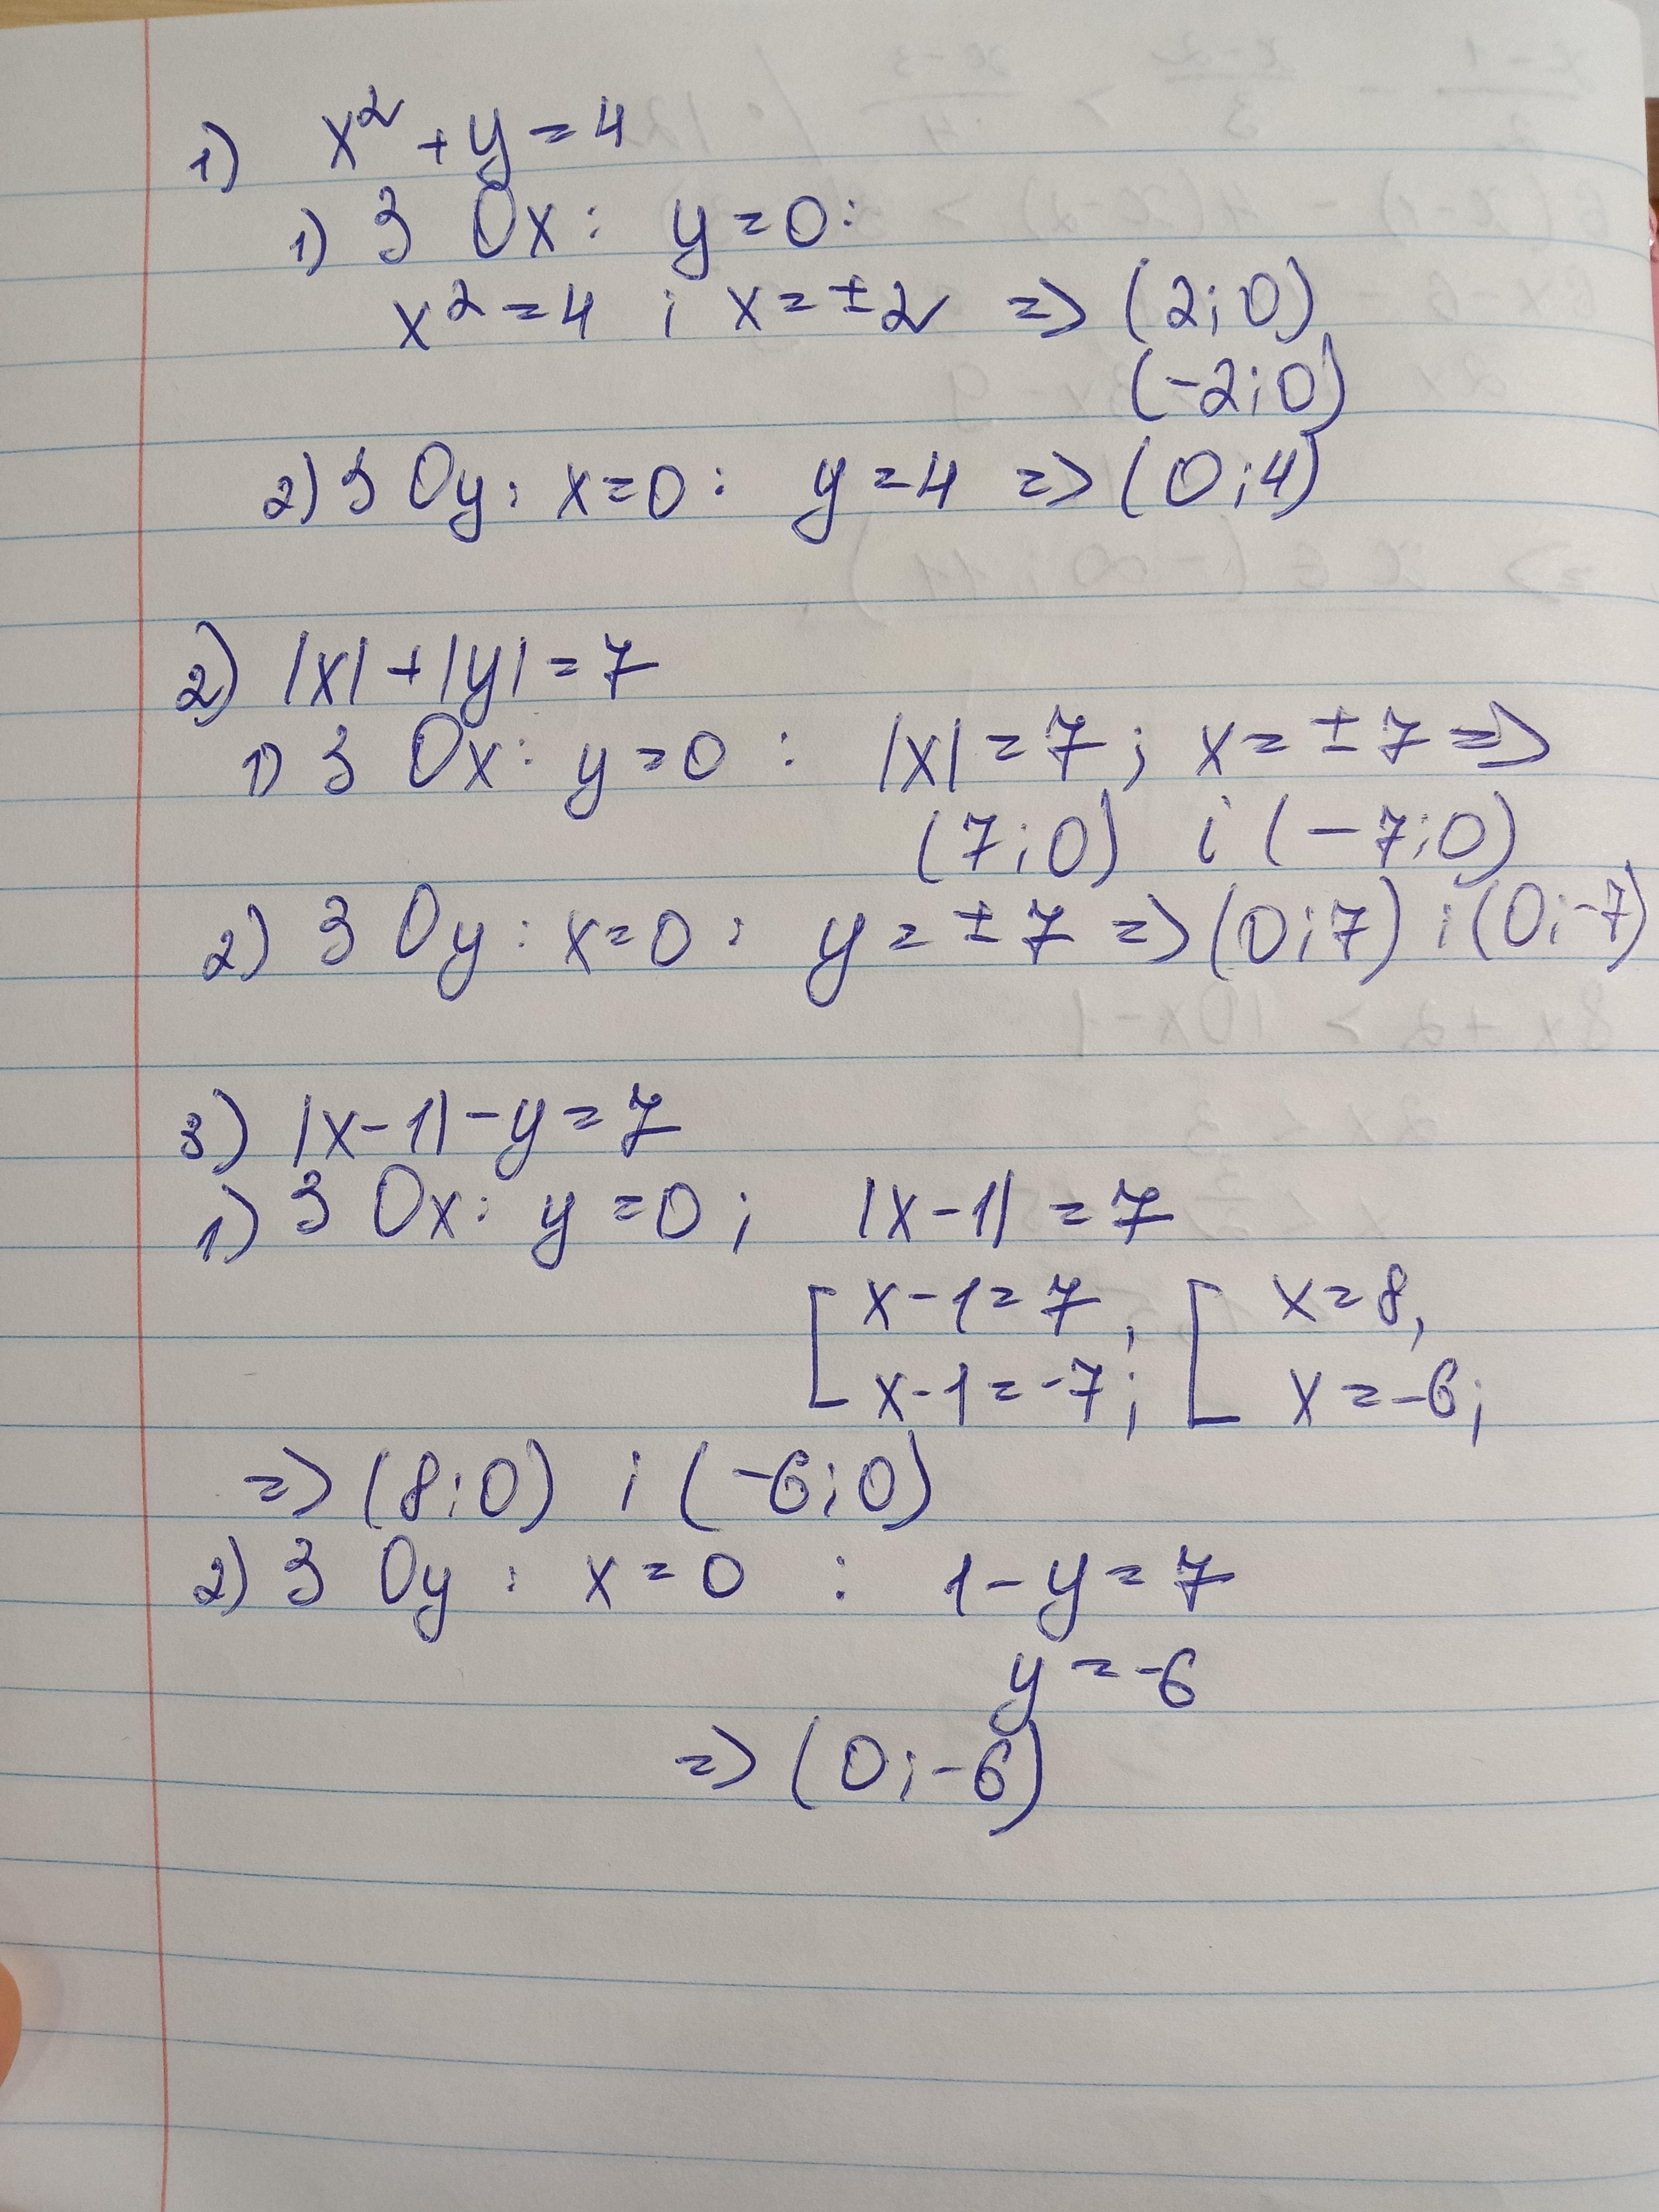 1) x² + y = 4
1) З Ox: y = 0:
x² = 4 ; x = ±2 => (2;0)
(-2;0)
2) З Oy: x = 0: y = 4 => (0;4)
2) |x| + |y| = 7
1) З Ox: y = 0: |x| = 7; x = ±7 =>
(7;0) i (-7;0)
2) З Oy: x = 0: y = ±7 => (0;7) i (0;-7)
3) |x-1| - y = 7
1) З Ox: y = 0; |x-1| = 7
[ x-1 = 7, [ x = 8,
x-1 = -7; x = -6;
=> (8;0) i (-6;0)
2) З Oy: x = 0 : 1 - y = 7
y = -6
=> (0;-6)